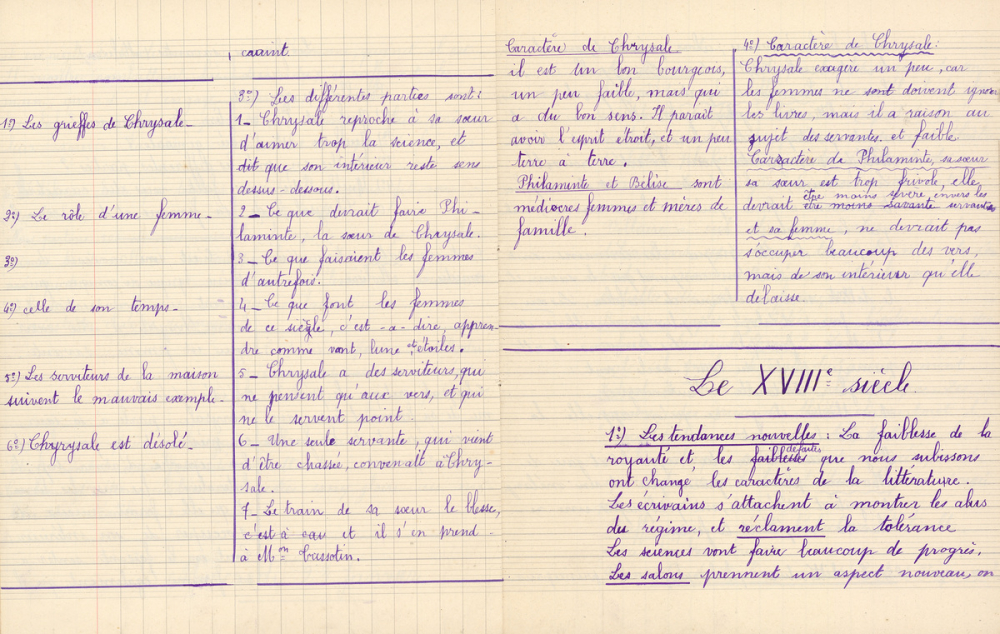 cavint.
1º) Les grieffes de Chrysale-
2º) Le rôle d'une femme-
3º)
4º) celle de son temps-
5º) Les serviteurs de la maison
suivent le mauvais exemple-
6º) Chyrysale est désolé-
3º) Les différentes parties sont:
1- Chrysale reproche à sa sœur
d'aimer trop la science, et
dit que son intérieur reste sens
dessus-dessous.
2- Ce que devrait faire Phi-
laminte, la sœur de Chrysale.
3- Ce que faisaient les femmes
d'autrefois.
4- Ce que font les femmes
de ce siècle, c'est-a-dire, appren-
dre comme vont, lune et étoiles.
5- Chrysale a des serviteurs, qui
ne pensent qu'aux vers, et qui
ne le servent point.
6- Une seule servante, qui vient
d'être chassés, convenalt à Chry-
sale.
7- Le train de sa sœur le blesse,
c'est à eau et il s'en prend
à Mon Cassotin.
Caractère de Chrysale
il est un bon bourgeois,
un peu faible, mais qui
a du bon sens. Il parait
avoir l'esprit étroit, et un peu
terre à terre.
Philaminte et Belise sont
médiocres femmes et mères de
famille.
4º) Caractère de Chrysale:
Chrysale exagère un peu, car
les femmes ne sont doivent ignorer
les livres, mais il a raison au
sujet des servantes. et faible
Caractère de Philaminte, sa sœur
sa sœur est trop frivole, elle
devrait être moins sévère, envers les
être moins savante servantes
et sa femme, ne devrait pas
s'occuper beaucoup des vers,
mais de son intérieur qu'elle
délaisse.
Le XVIIIe siècle.
1º) Les tendances nouvelles: La faiblesse de la
royauté et les faiblesses défaites que nous subissons
ont changé les caractères de la littérature.
Les écrivains s'attachent à montrer les abus
du régime, et réclament la tolérance
Les sciences vont faire beaucoup de progrès.
Les salons prennent un aspect nouveau, on